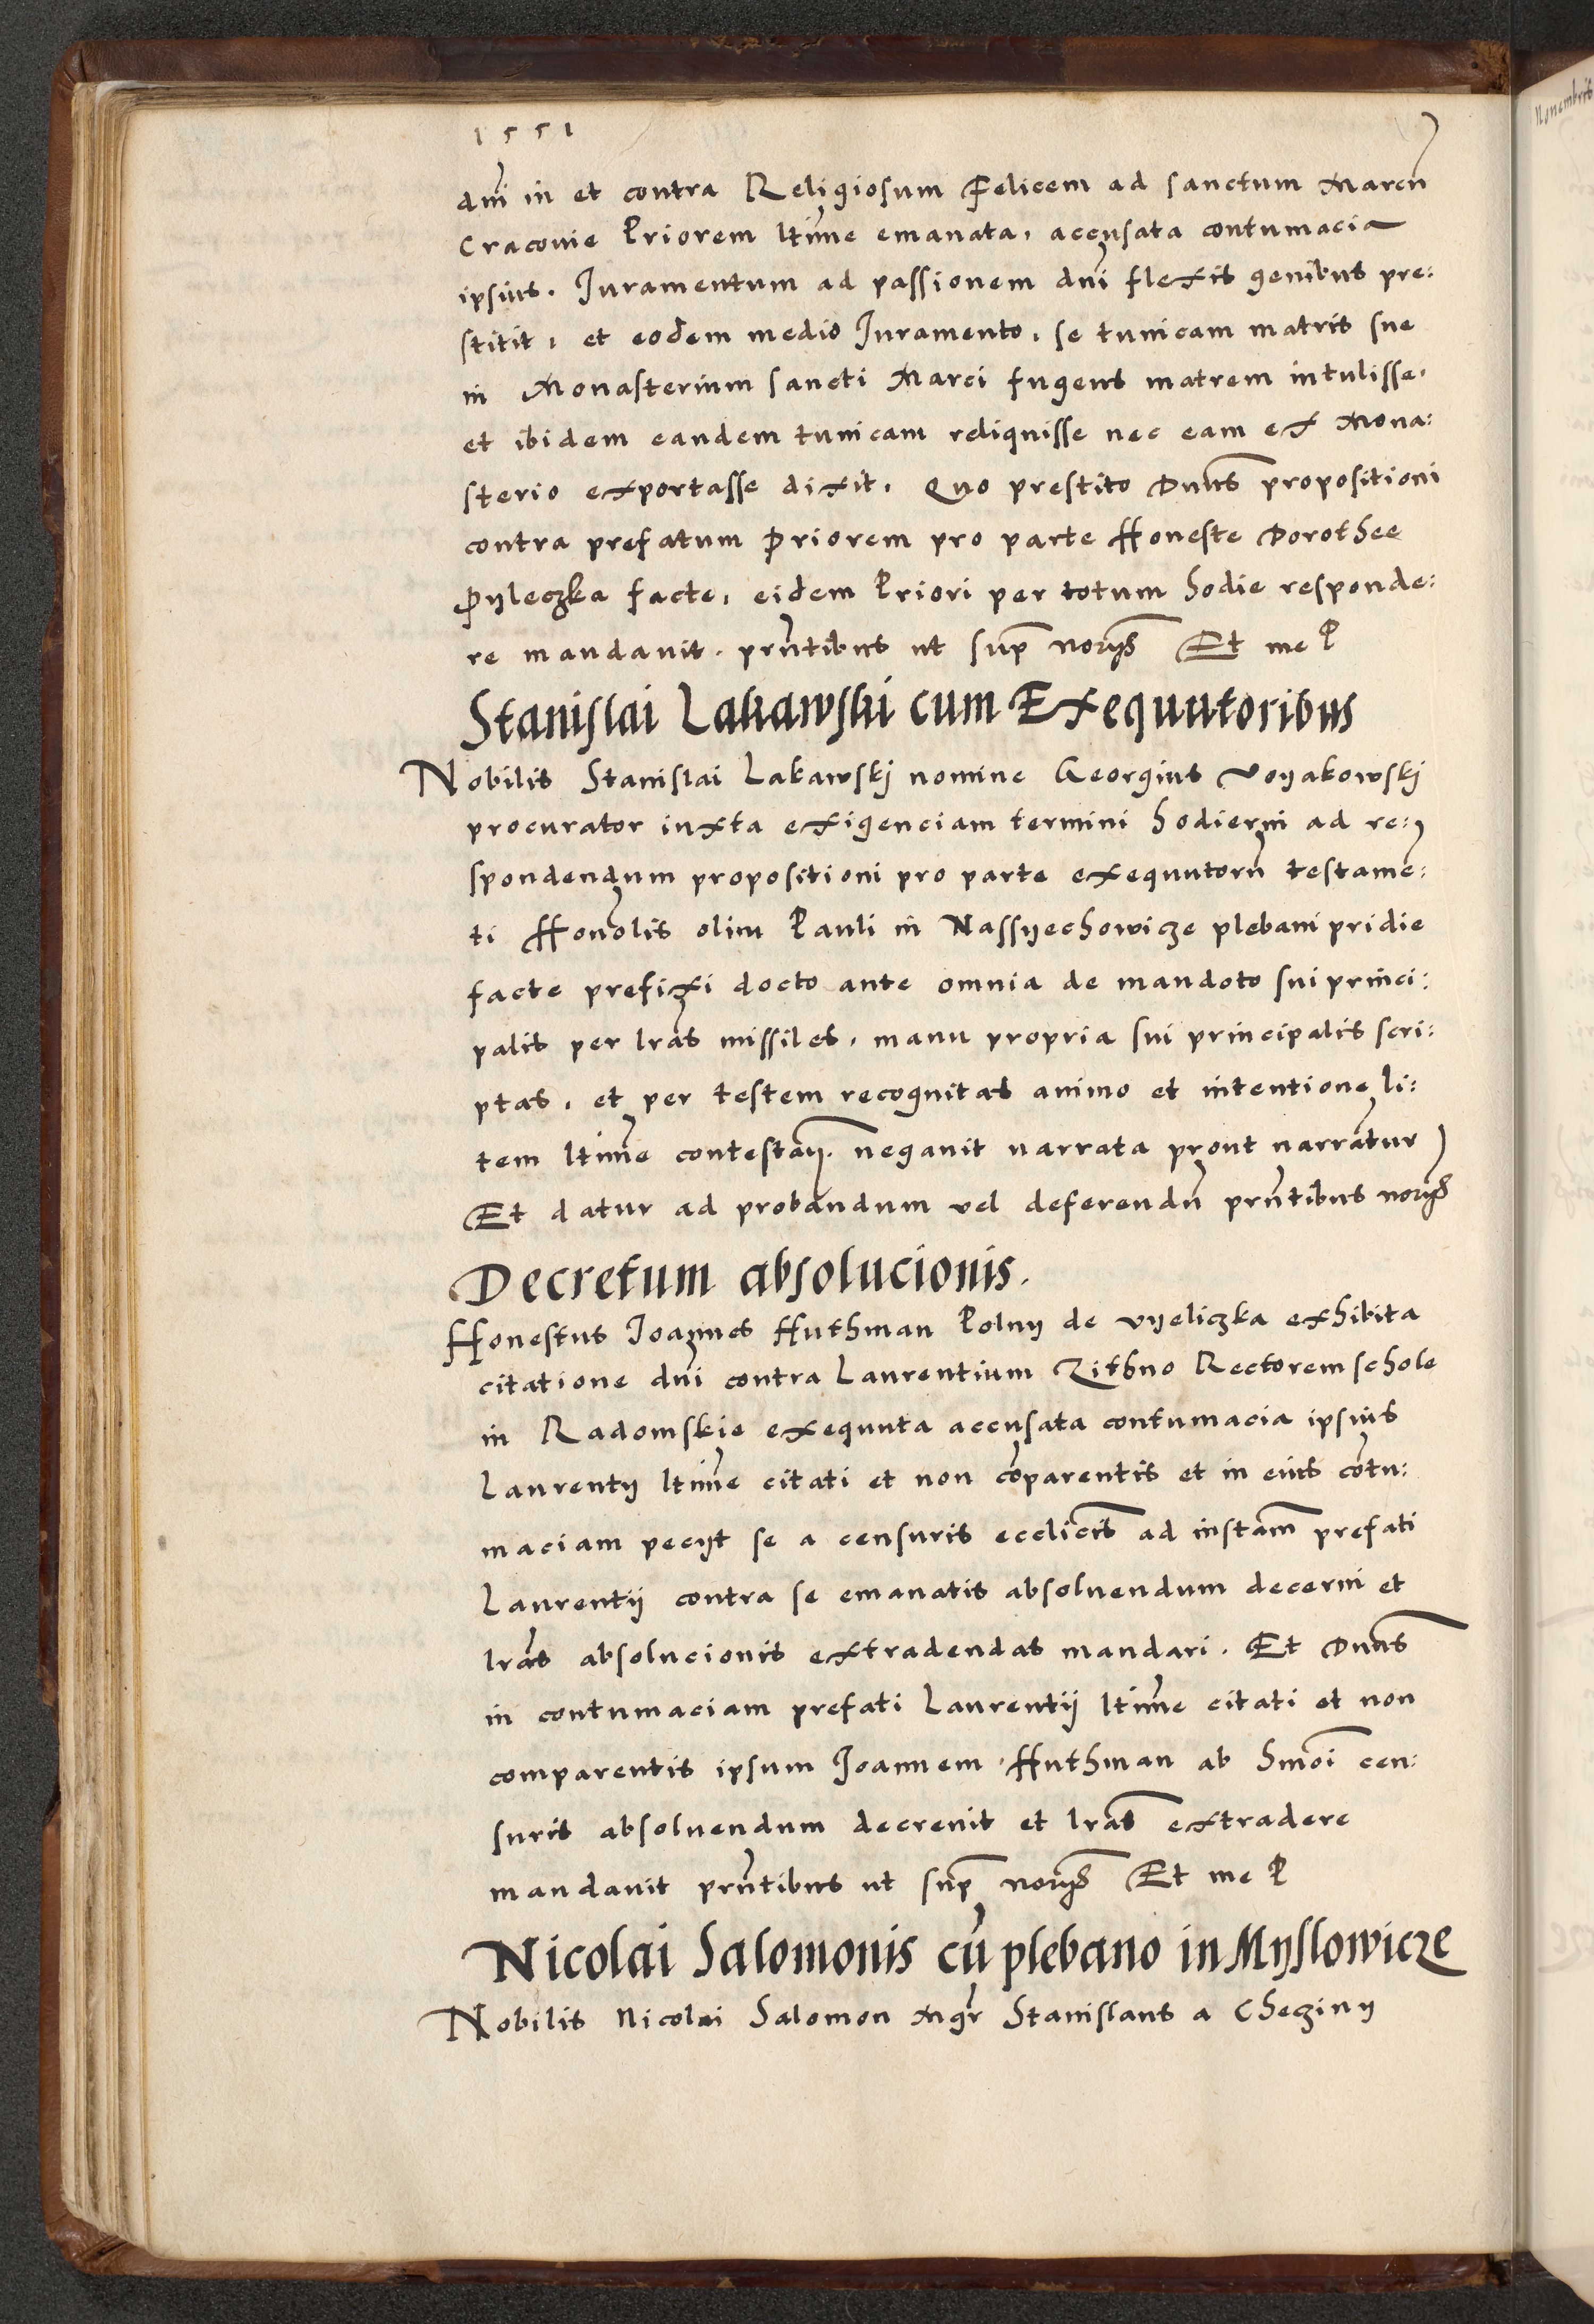 1551
dnĩ in et contra Religiosum Felicem ad sanctum Marcũ
Cracovie Priorem ltime emanata, accusata contumacia
ipsius. Juramentum ad passionem dnĩ flexis genibus pre:
stitit, et eodem medio Juramento, se tunicam matris sue
in Monasterium sancti Marci fugens matrem intulisse,
et ibidem eandem tunicam reliquisse nec eam ex Mona:
sterio exportasse dixit. Quo prestito Dnus propositioni
contra prefatum Priorem pro parte Honeste Dorothee
Pyleczka facte, eidem Priori per totum hodie responde:
re mandavit. prñtibus ut sup norys Et me P
Stanislai Lakawski cum Exequutoribus
Nobilis Stanislai Lakawskj nomine Georgius Voyakowskj
procurator iuxta exigenciam termini hodierni ad re:
spondendum propositioni pro parte exequutorũ testamẽ:
ti Honolis olim Pauli in Nassyechowicze plebani pridie
facte prefixi docto ante omnia de mandoto sui princi:
palis per lras missiles, manu propria sui principalis scri:
ptas, et per testem recognitas animo et intentione li:
tem ltime contestañ. negavit narrata prout narrãtur
Et datur ad probandum vel deferendũ prñtibus norys
Decretum absolucionis.
Honestus Joannes Huthman Polny de vyeliczka exhibita
citatione dnĩ contra Laurentium Zithno Rectorem schole
in Radomskie exequuta accusata contumacia ipsius
Laurentij ltime citati et non cõparentis et in eius cõtu:
maciam pecijt se a censuris ecclicis ad instañ prefati
Laurentij contra se emanatis absolvendum decerni et
lras absolucionis extradendas mandari. Et Dnus
in contumaciam prefati Laurentij ltime citati et non
comparentis ipsum Joannem Huthman ab hmoi cen:
suris absolvendum decrevit et lras extradere
mandavit prñtibus ut sup norys Et me P
Nicolai Salomonis cũ plebano in Myslowicze
Nobilis Nicolai Salomon Mgr Stanislaus a Cheginy
Novembris